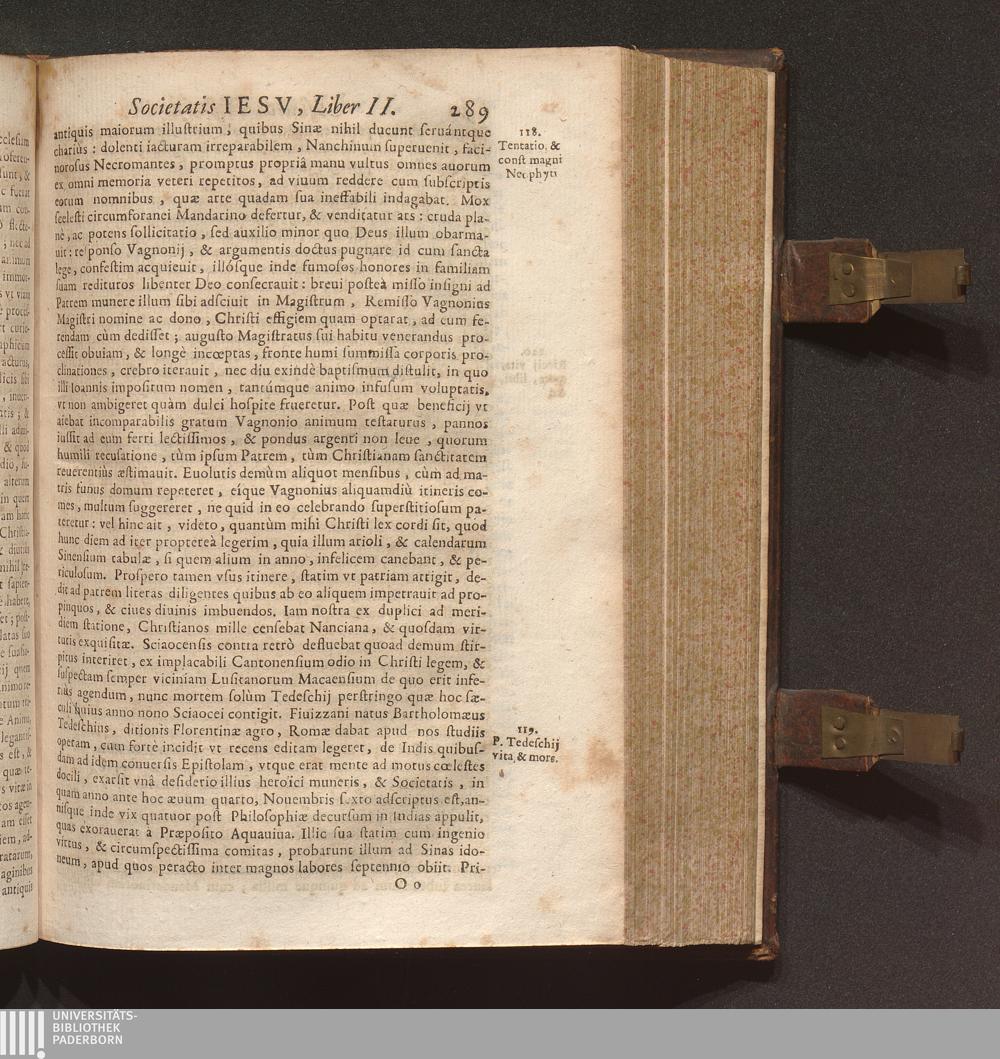 Societatis IESV, Liber II. 289
antiquis maiorum illustrium, quibus Sinæ nihil ducunt seruántque
charius: dolenti iacturam irreparabilem, Nanchinum superuenit, faci-
norosus Necromantes, promptus propriâ manu vultus omnes auorum
ex omni memoria veteri repetitos, ad viuum reddere cum subscriptis
eorum nomnibus, quæ arte quadam sua ineffabili indagabat. Mox
scelesti circumforanei Mandarino defertur, & venditatur ars: cruda pla-
nè, ac potens sollicitatio, sed auxilio minor quo Deus illum obarma-
uit: re ponso Vagnonij, & argumentis doctus pugnare id cum sancta
lege, confestim acquieuit, illósque inde fumosos honores in familiam
suam redituros libenter Deo consecrauit: breui posteà misso insigni ad
Patrem munere illum sibi adsciuit in Magistrum, Remisso Vagnonius
Magistri nomine ac dono, Christi effigiem quam optarat, ad eum fe-
rendam cùm dedisset; augusto Magistratus sui habitu venerandus pro-
cessit obuiam, & longè incœptas, fronte humi summissa corporis pro-
clinationes, crebro iterauit, nec diu exindè baptismum distulit, in quo
illi Ioannis impositum nomen, tantúmque animo infusum voluptatis,
vt non ambigeret quàm dulci hospite frueretur. Post quæ beneficij vt
aiebat incomparabilis gratum Vagnonio animum testaturus, pannos
iussit ad eum ferri lectissimos, & pondus argenti non leue, quorum
humili recusatione, tùm ipsum Patrem, tùm Christianam sanctitatem
reuerentiùs æstimauit. Euolutis demùm aliquot mensibus, cùm ad ma-
tris funus domum repeteret, eíque Vagnonius aliquamdiù itineris co-
mes, multum suggereret, ne quid in eo celebrando superstitiosum pa-
teretur: vel hinc ait, videto, quantùm mihi Christi lex cordi sit, quod
hunc diem ad iter proptereà legerim, quia illum arioli, & calendarum
Sinensium tabulæ, si quem alium in anno, infelicem canebant, & pe-
riculosum. Prospero tamen vsus itinere, statim vt patriam attigit, de-
dit ad patrem literas diligentes quibus ab eo aliquem impetrauit ad pro-
pinquos, & ciues diuinis imbuendos. Iam nostra ex duplici ad meri-
diem statione, Christianos mille censebat Nanciana, & quosdam vir-
tutis exquisitæ. Sciaocensis contra retrò defluebat quoad demum stir-
pitus interiret, ex implacabili Cantonensium odio in Christi legem, &
suspectam semper viciniam Lusitanorum Macaensium de quo erit infe-
rius agendum, nunc mortem solùm Tedeschij perstringo quæ hoc sæ-
culi huius anno nono Sciaocei contigit. Fiuizzani natus Bartholomæus
Tedeschius, ditionis Florentinæ agro, Romæ dabat apud nos studiis
operam, cum forte incidit vt recens editam legeret, de Indis quibus-
dam ad idem conuersis Epistolam, vtque erat mente ad motus cœlestes
docili, exarsit vnâ desiderio illius heroïci muneris, & Societatis, in
quam anno ante hoc æuum quarto, Nouembris sexto adscriptus est, an-
nisque inde vix quatuor post Philosophiæ decursum in Indias appulit,
quas exorauerat à Præposito Aquauiua. Illic sua statim cum ingenio
virtus, & circumspectissima comitas, probarunt illum ad Sinas ido-
neum, apud quos peracto inter magnos labores septennio obiit. Pri-
O o
118.
Tentatio, &
const magni
Neophyti
119.
P. Tedeschij
vita, & mors.
UNIVERSITÄTS-
BIBLIOTHEK
PADERBORN